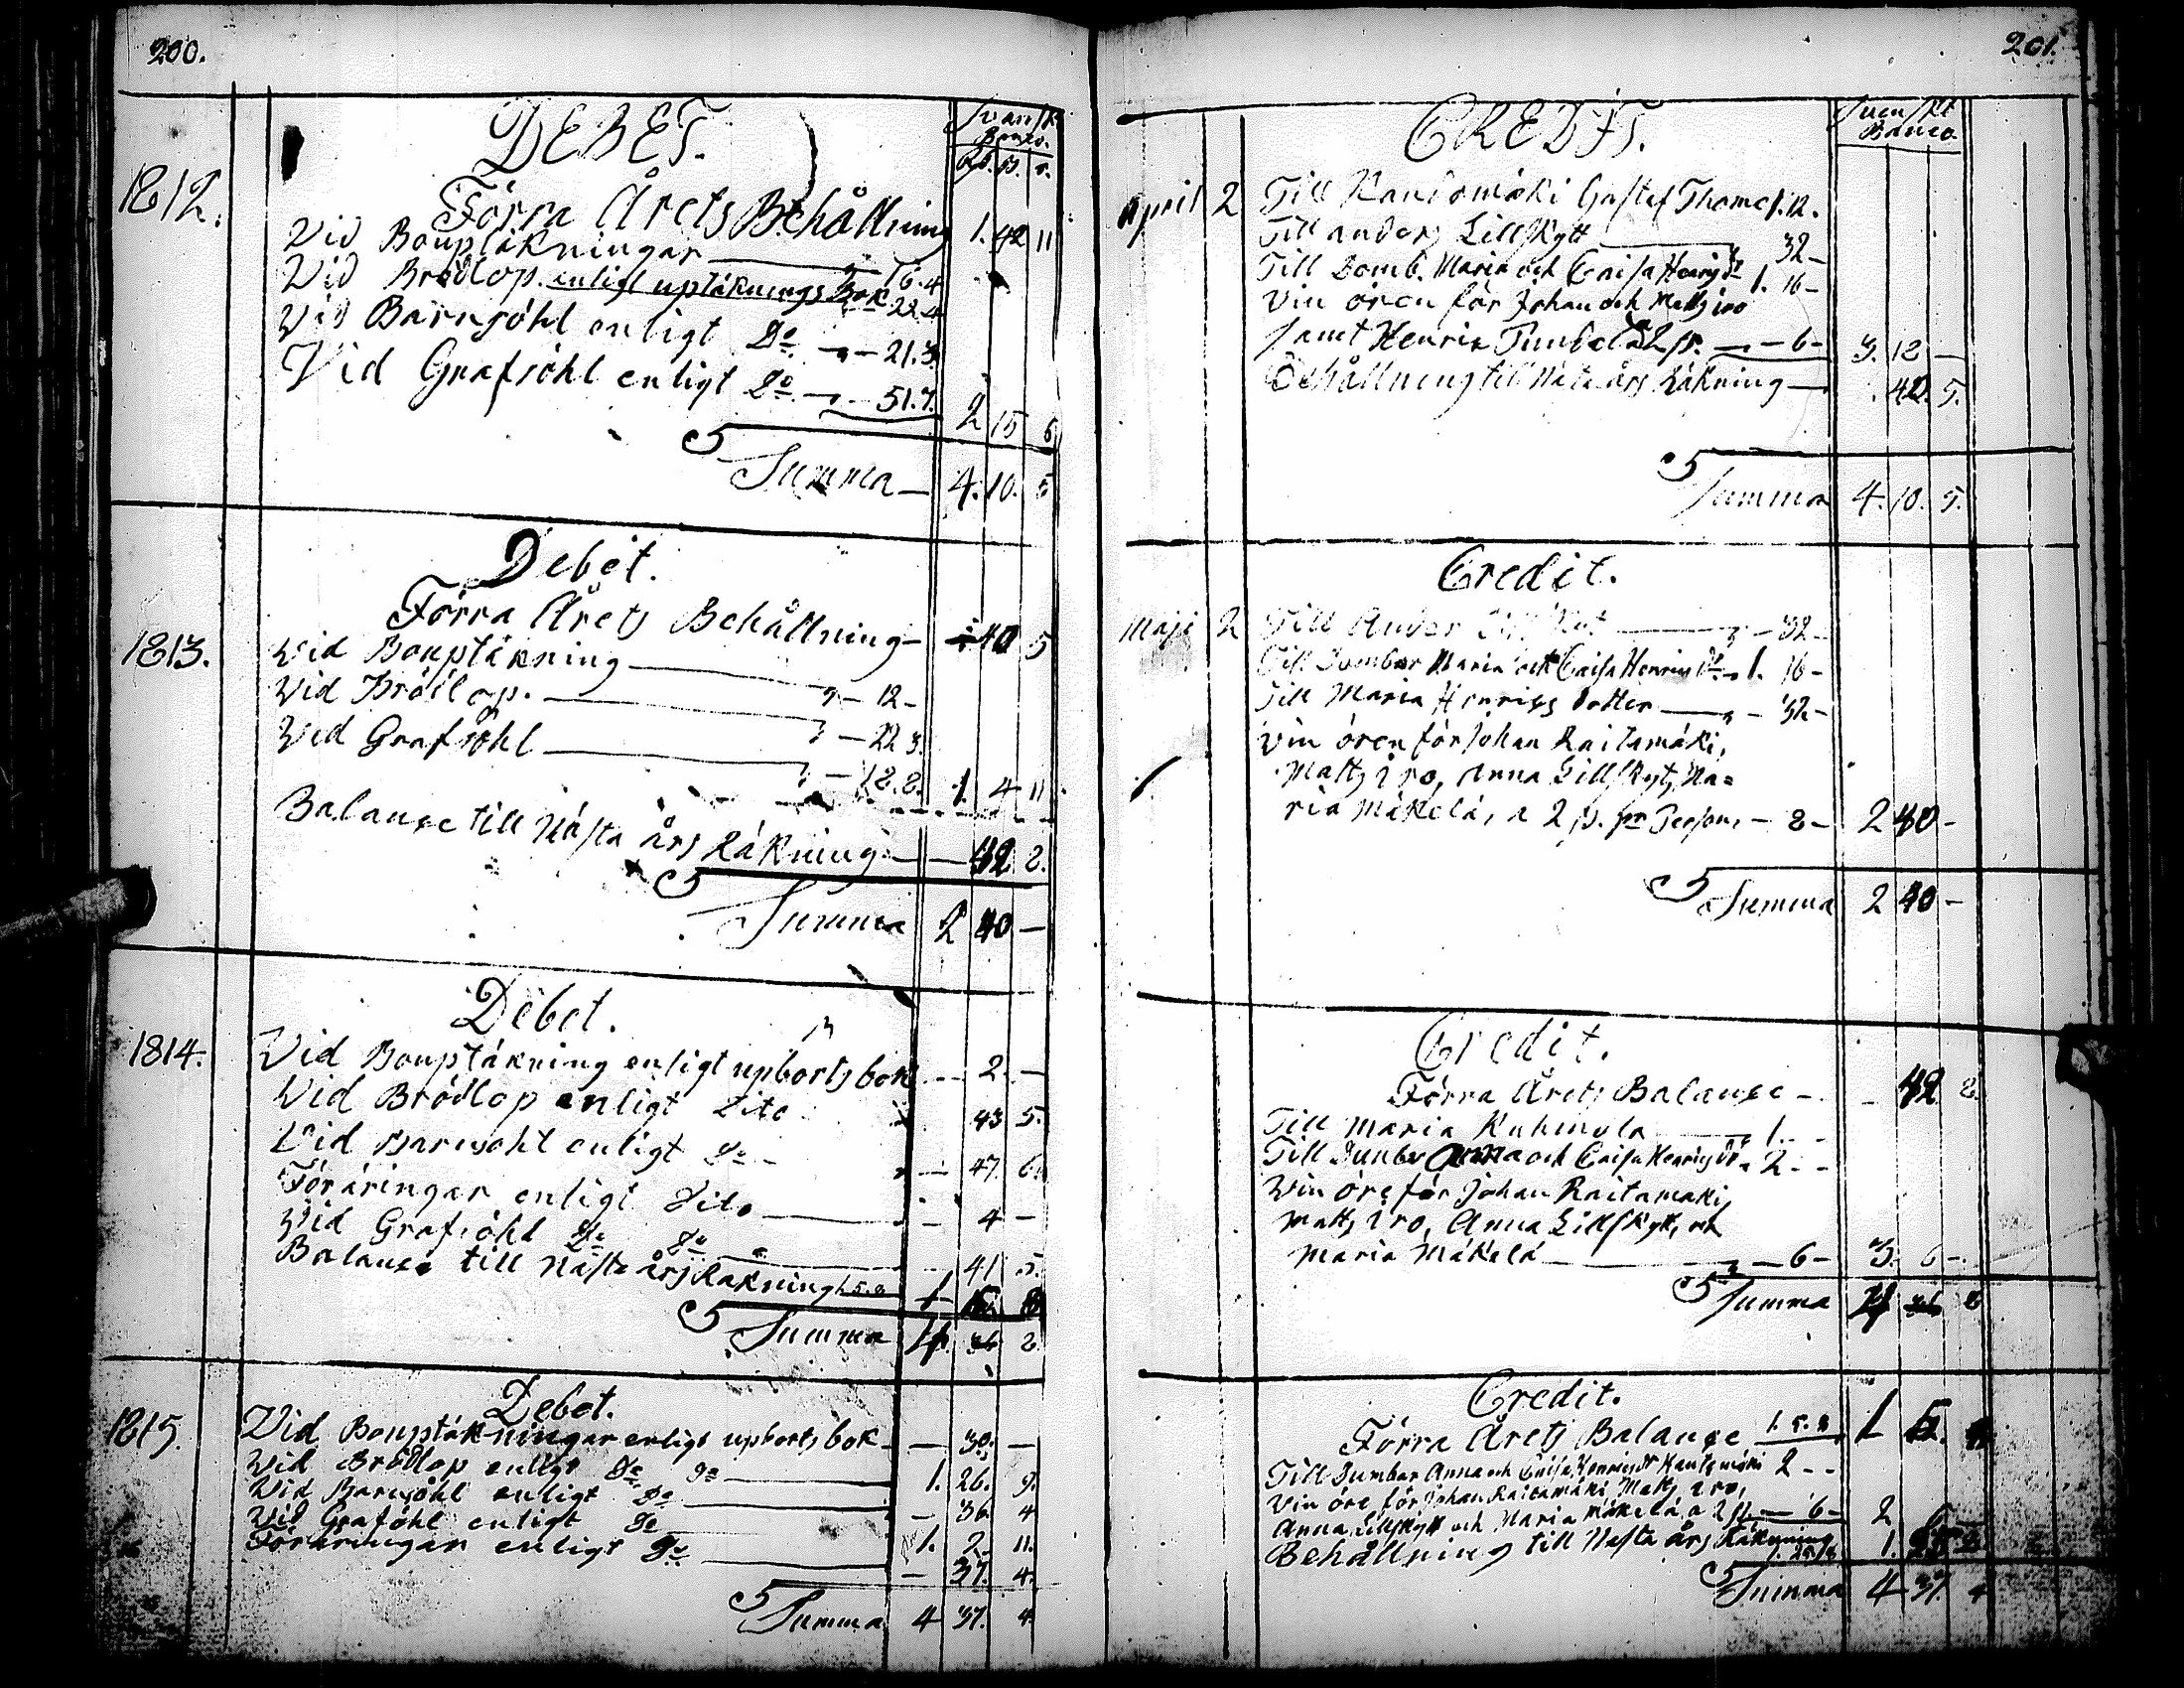 200.
DEBET.
Svenskt
Banco.
Rd. ß. r.
1812.
Förra Årets Behållning 1. 42 11
Vid Bouptäkningar 16. 4
Vid Brödlop enligt uptäknings Bok 22. 4
Vid Barnsöhl enligt Do 21. 3
Vid Grafsöhl enligt Do 51. 7. 2 15 6
Summa 4. 10. 5
Debet.
1813.
Förra Årets Behållning 40 5
Vid Bouptäkning 12
Vid Brödlop. 22 3.
Vid Grafsöhl 18. 8. 1. 4 11
Balance till Nästa års Räkning 42 8.
Summa 2 40
Debet.
1814.
Vid Bouptäkning enligt upbörts bok 2
Vid Brödlop enligt Dito 43 5.
Vid Barnsohl enligt Do 47. 6.
Föräringar enligt Dito 4
Vid Grafsöhl Do Do 41 5.
Balance till Nästa års Räkning 1. 5. 8 1
Summa 36 8
Debet.
1815.
Vid Bouptäkningar enligt upbörts bok 30.
Vid Brödlop enligt Do Do 1. 26. 9.
Vid Barnsöhl enligt Do 36 4
Vid Grafsöhl enligt Do 1. 2. 11.
Föräringar enligt Do 37. 4.
Summa 4 37. 4.
201.
CREDIT.
Svenskt
Banco.
April 2 Till Gustaf Thomas 1. 12.
Till anders Lillskytt 32
Till Domb. Maria och Caisa Henrigs Dr 1. 16
Vin ören för Johan och Matts iro
samt Henric 2 ß. 6 3. 18
Behållning till Nästa års Räkning 40. 5.
Summa 4. 10. 5.
Credit.
Maji 2 Till Ander 32
Till Dumbar Maria och Caisa Henrics Dr 1. 16
Till Maria Henrigs dotter 32
Vin ören för Johan Raitamäki,
Matts iro, Anna Lillskyt, Ma=
ria Mäkelä, a 2 ß. pr Person 8 2 40
Summa 2 40
Credit.
Förra Årets Balance 42 8.
Till Maria Kuhmola 1.
Till Dumbar Anna och Caisa Henrigs Dr 2
Vin öre för Johan Raitamaki,
Matts iro, Anna Lillskytt, och
Maria Mäkelä 6 3. 6
Summa 4 36 8
Credit.
Förra Årets Balance 1. 5. 8 1 5.
Till Dumbar Anna och Caisa Henrics Dr 2
Vin öre för Johan Raitamäki, Matts iro,
Anna Lillskytt och Maria Mäkelä a 2 ß 6 2 6
Behållning till Nästa års Räkning 1.
Summa 4 37. 4